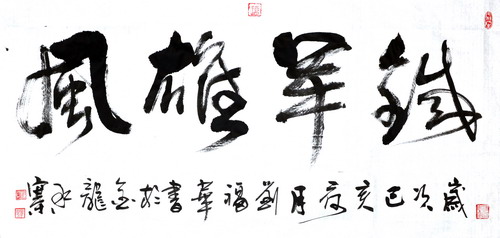 鐵軍雄風
歲次己亥夏月劉福華書於金龍水寨